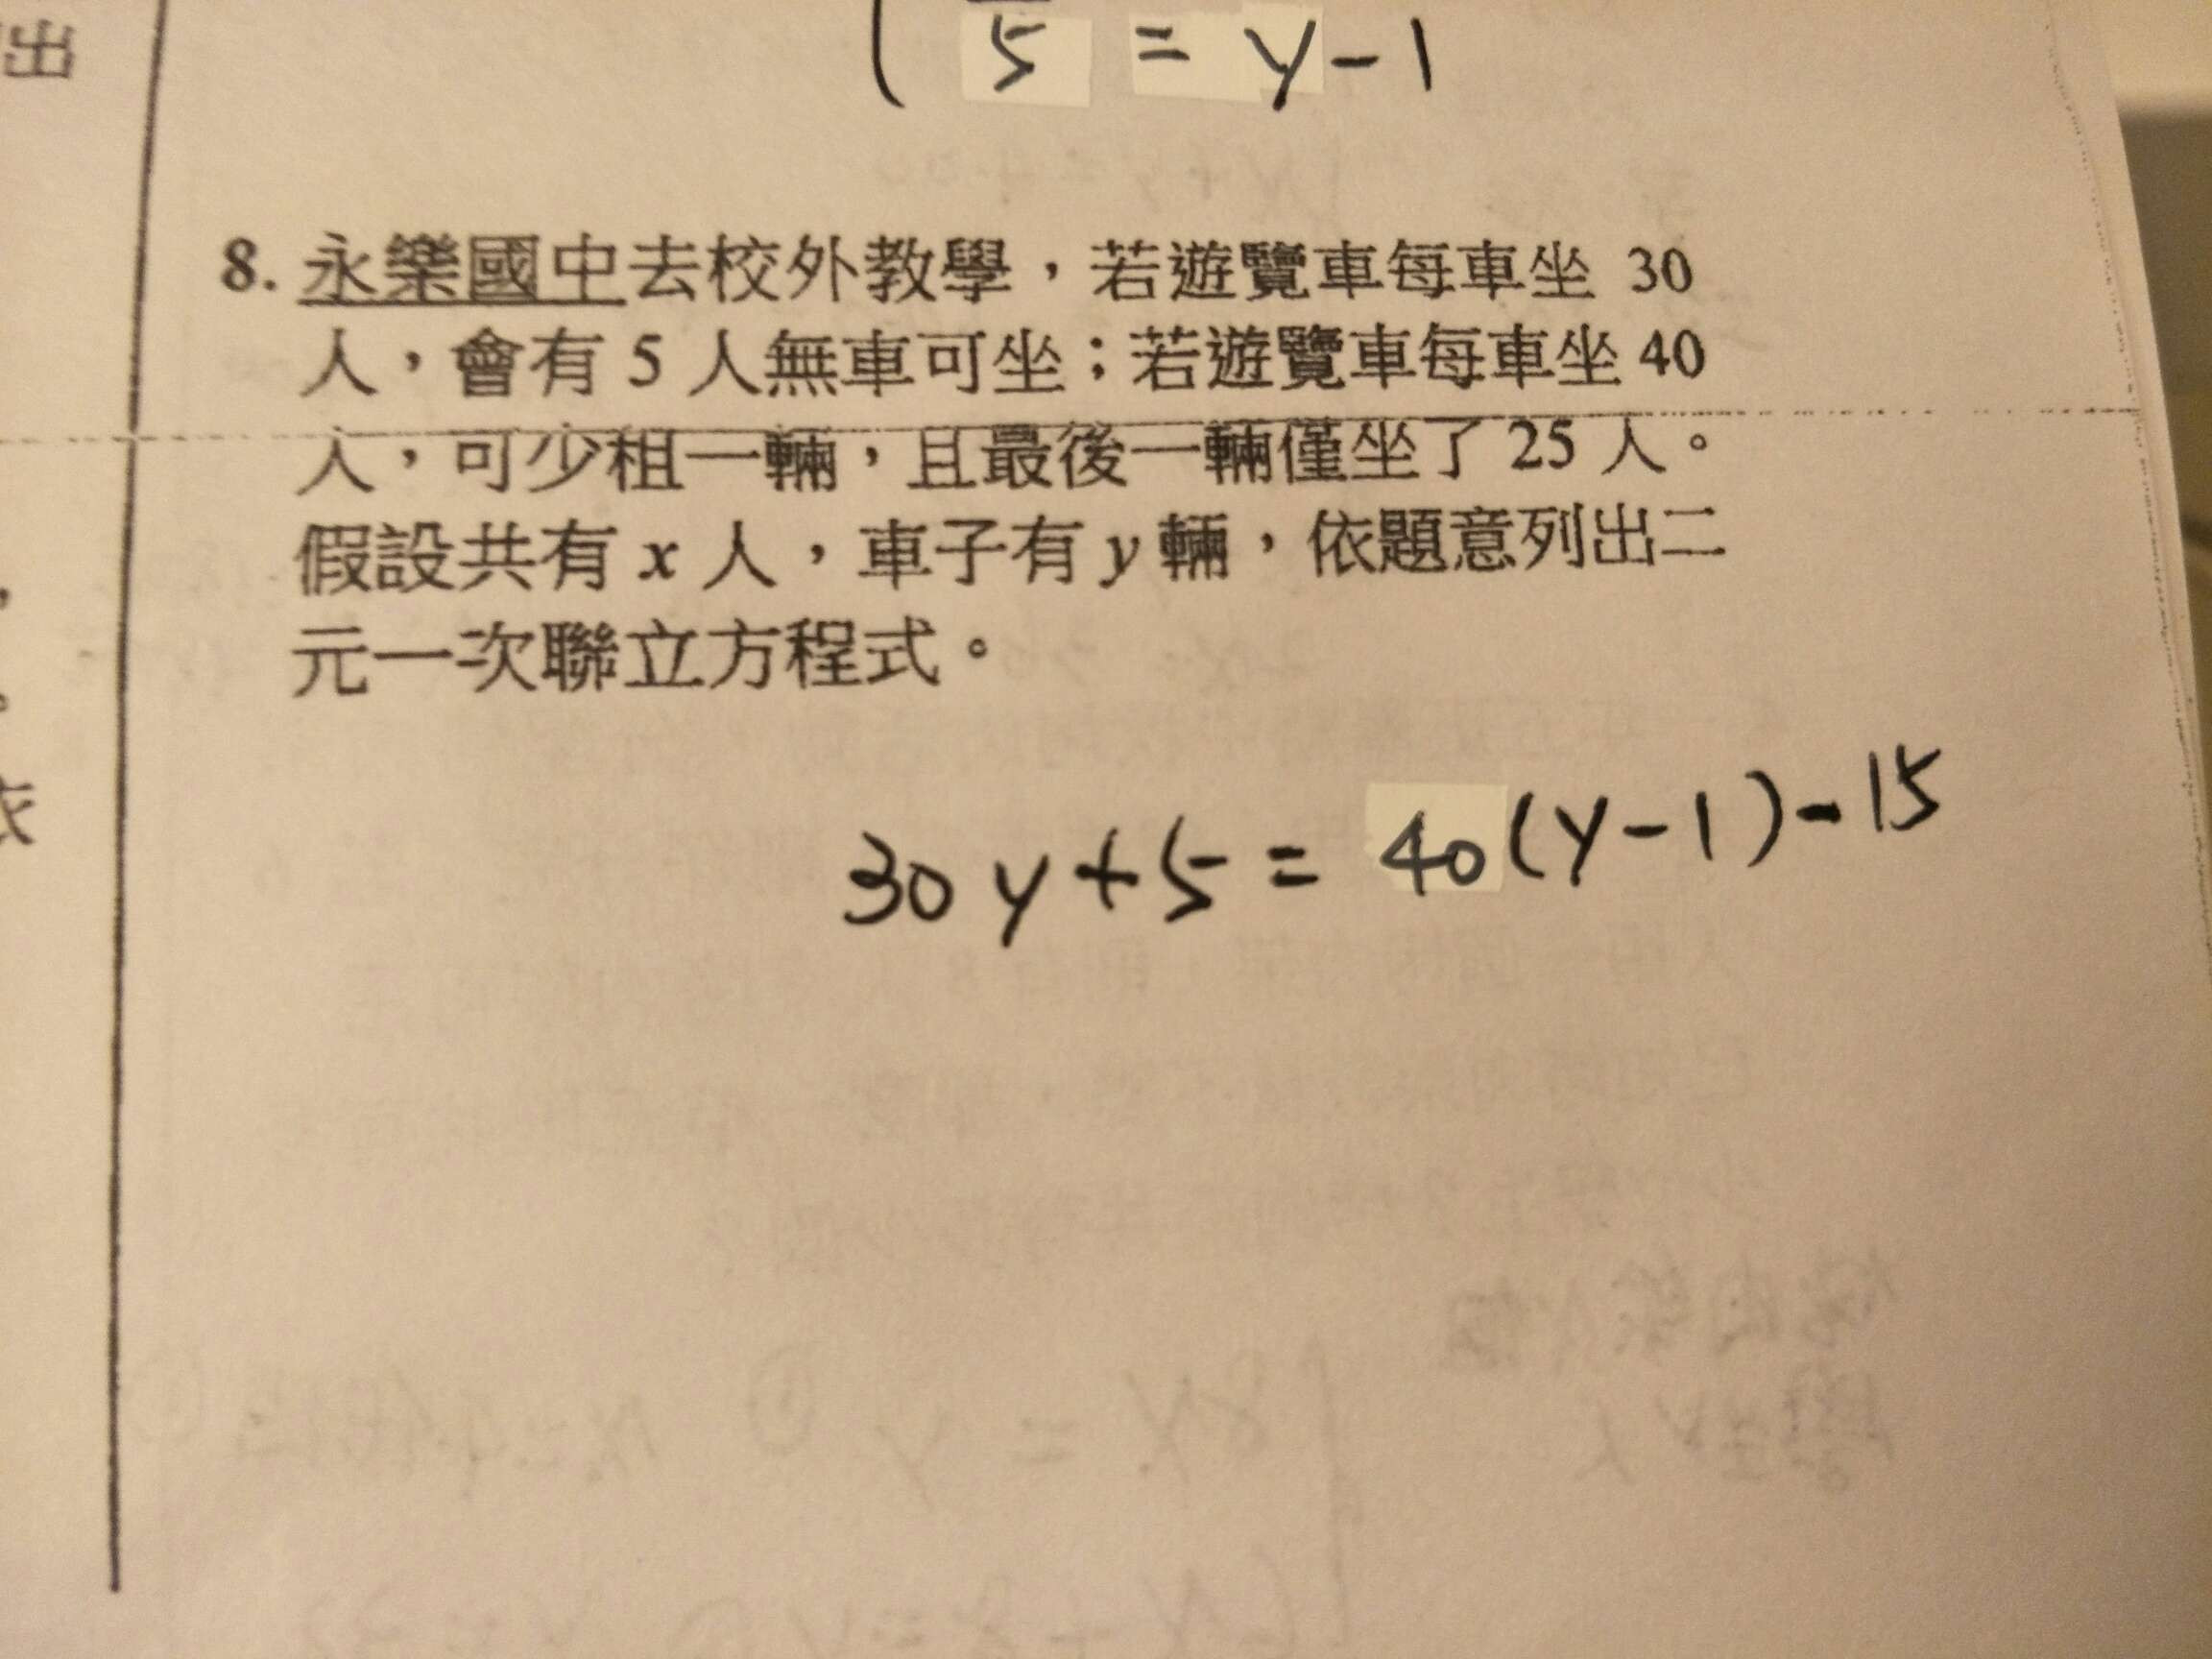 出
5 = y - 1
8. 永樂國中去校外教學，若遊覽車每車坐 30
人，會有 5 人無車可坐；若遊覽車每車坐 40
人，可少租一輛，且最後一輛僅坐了 25 人。
假設共有 x 人，車子有 y 輛，依題意列出二
元一次聯立方程式。
30y+5=40(y-1)-15